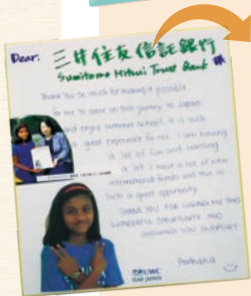 Dear: 三井住友信託銀行 様
Sumitomo Mitsui Trust Bank
Thank You So much for making it possible
for me to come on this journey to Japan
and enjoy summer school. It is such
a great experience to me. I am having
a lot of fun and learning
a lot. I have a lot of new
international friends and this is
such a great opportunity.
THANK YOU FOR GIVING ME THIS
WONDERFUL OPPORTUNITY AND
SHOWING YOUR SUPPORT
UWC
ISAK JAPAN